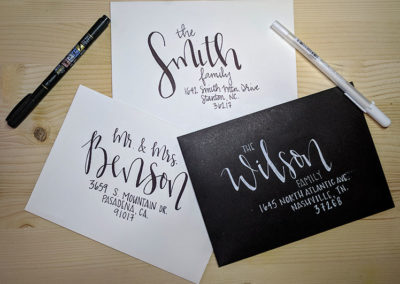 the
Smith
family
1641 Smith Mtn. Drive
Stanton, NC.
36217
Mr. & Mrs.
Benson
3659 S. MOUNTAIN DR.
PASADENA, CA.
91017
THE
Wilson
FAMILY
1645 NORTH ATLANTIC AVE.
NASHVILLE, TN.
37268